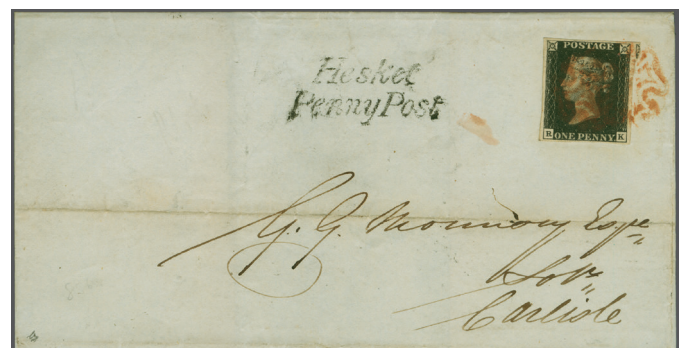 Hesket
Penny Post
POSTAGE
R K
ONE PENNY
G. G. Mounsey Esqre
Solr
Carlisle